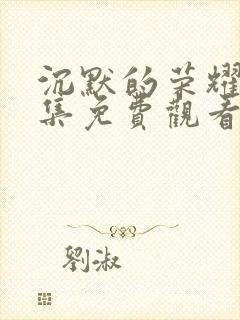 沉默的荣耀
集免費觀看
劉淑